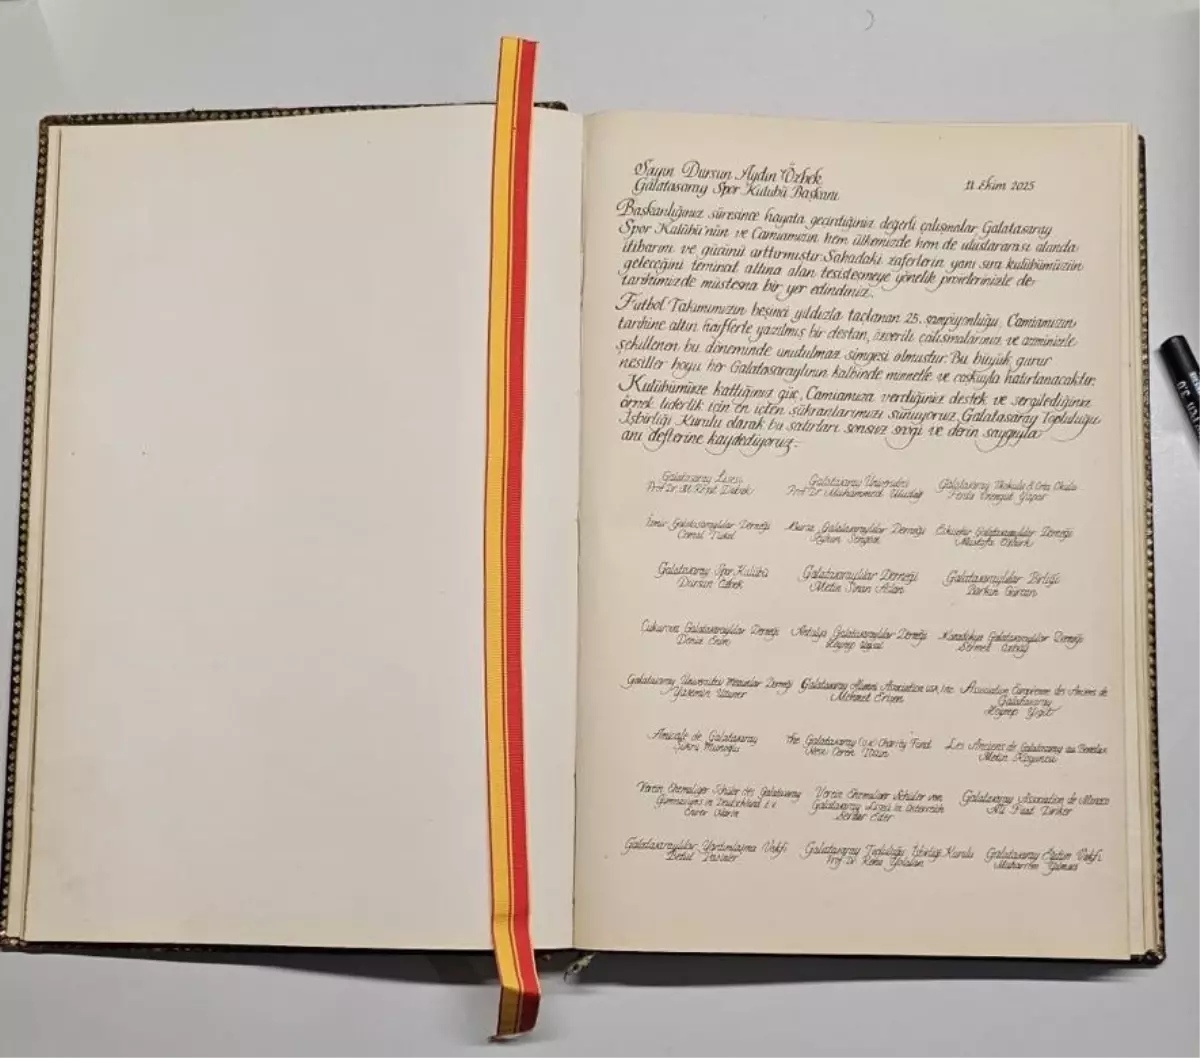 Sayın Dursun Aydın Özbek
Galatasaray Spor Kulübü Başkanı
11 Ekim 2025
Başkanlığınız süresince hayata geçirdiğiniz değerli çalışmalar Galatasaray
Spor Kulübü'nün ve Camiamızın hem ülkemizde hem de uluslararası alanda
itibarını ve gücünü arttırmıştır. Sahadaki zaferlerin yanı sıra kulübümüzün
geleceğini teminat altına alan tesisleşmeye yönelik projelerinizle de
tarihimizde müstesna bir yer edindiniz.
Futbol Takımımızın beşinci yıldızla taçlanan 25. şampiyonluğu, Camiamızın
tarihine altın harflerle yazılmış bir destan, özverili çalışmalarınız ve azminizle
şekillenen bu döneminde unutulmaz simgesi olmuştur. Bu büyük gurur
nesiller boyu her Galatasaraylının kalbinde minnetle ve coşkuyla hatırlanacaktır.
Kulübümüze kattığınız güç, Camiamıza verdiğiniz destek ve sergilediğiniz
örnek liderlik için en içten şükranlarımızı sunuyoruz. Galatasaray Topluluğu
İşbirliği Kurulu olarak bu satırları sonsuz sevgi ve derin saygıyla
anı defterine kaydediyoruz.
Galatasaray Lisesi Galatasaray Üniversitesi Galatasaray İlkokulu & Orta Okulu
Prof. Dr. M. Reşit Prof. Dr. Muhammed Uludağ Yapar
İzmir Galatasaraylılar Derneği Bursa Galatasaraylılar Derneği Eskişehir Galatasaraylılar Derneği
Cemal Ceyhun Mustafa
Galatasaray Spor Kulübü Galatasaraylılar Derneği Galatasaraylılar Birliği
Dursun Özbek Metin Sinan Aslan Gürcan
Çukurova Galatasaraylılar Derneği Antalya Galatasaraylılar Derneği Karadokya Galatasaraylılar Derneği
Deniz Zeynep Uysal Sermet
Galatasaray Üniversitesi Mezunlar Derneği Galatasaray Alumni Association USA, Inc. Association Européenne des Anciens de
Galatasaray
Yasemin Mehmet Zeynep Yiğit
Amicale de Galatasaray The Galatasaray (U.K) Charity Fund Les Anciens de Galatasaray au Benelux
Şükrü Ceren Metin
Verein Ehemaliger Schüler des Galatasaray Verein Ehemaliger Schüler vom Galatasaray Association de Monaco
Gymnasiums in Deutschland e.v. Galatasaray Lisesi in Österreich Ali Fuat
Enver Serdar
Galatasaraylılar Yardımlaşma Vakfı Galatasaray Topluluğu İşbirliği Kurulu Galatasaray Eğitim Vakfı
Betül Prof. Dr. Yolalan Muharrem